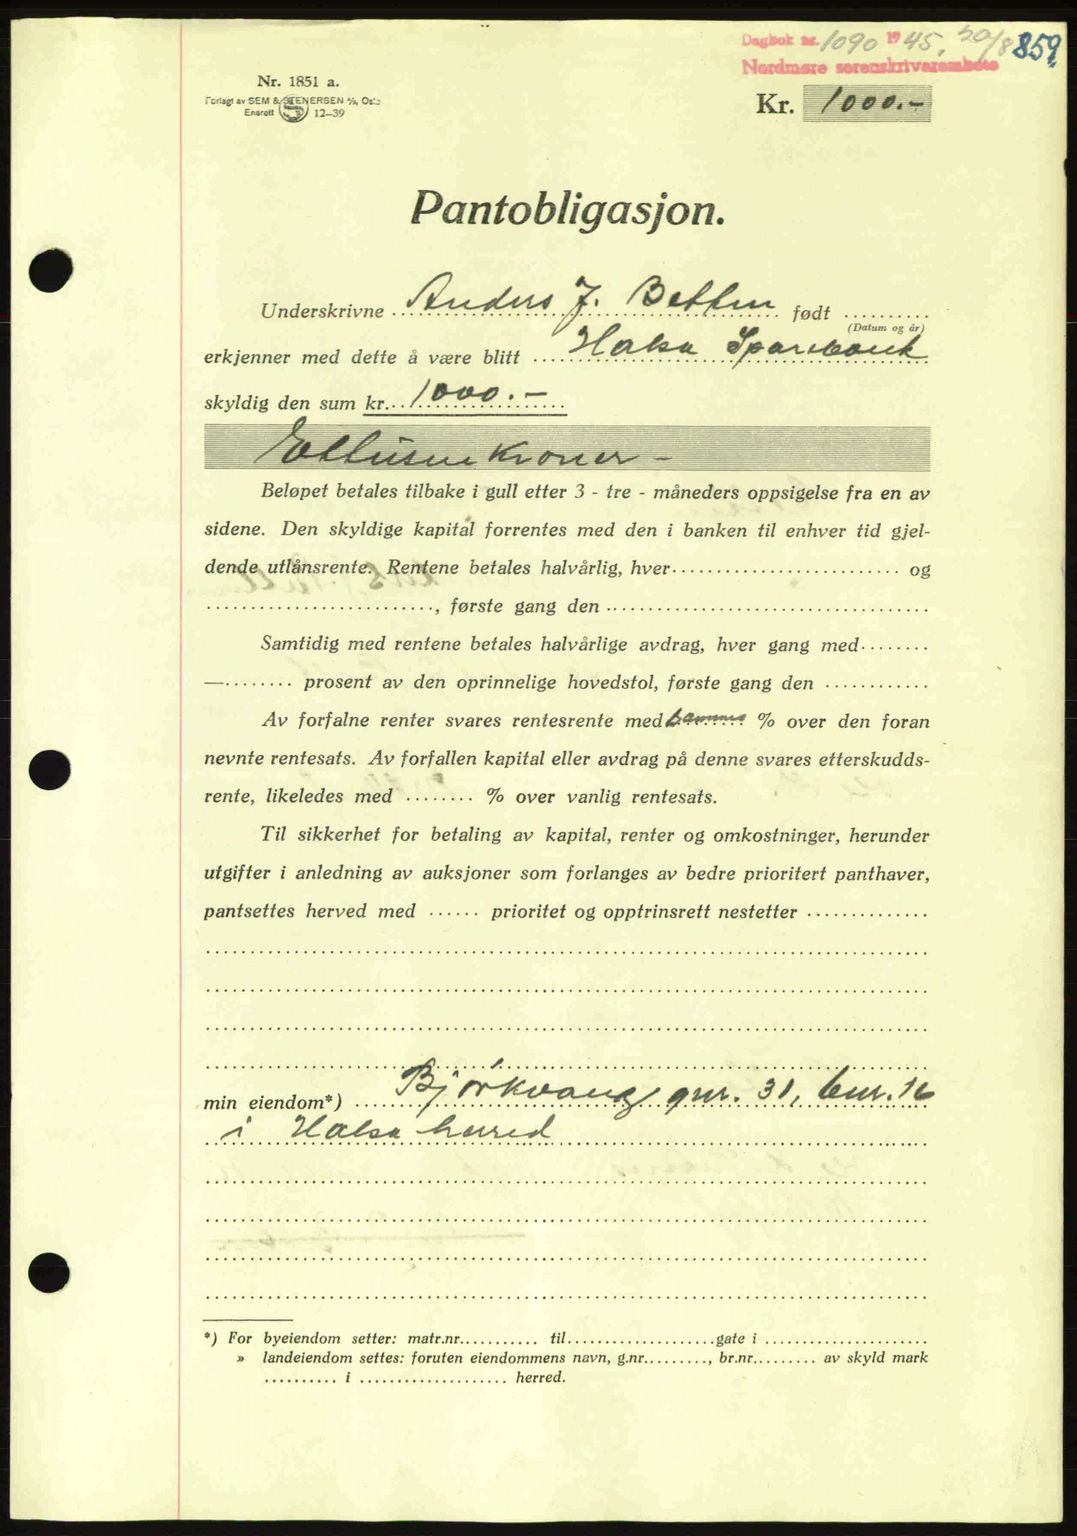 Dagbok nr. 1090 1945, 20/8 859
Nordmøre sorenskriverembete
Nr. 1851 a.
Forlagt av SEM & STENERSEN A/S, Oslo
Enerett 12—39
Kr. 1000.-
Pantobligasjon.
Underskrivne Anders J. Betten født ..........
(Datum og år)
erkjenner med dette å være blitt Halsa Sparebank
skyldig den sum kr. 1000.-
Ettusen kroner -
Beløpet betales tilbake i gull etter 3 - tre - måneders oppsigelse fra en av
sidene. Den skyldige kapital forrentes med den i banken til enhver tid gjel-
dende utlånsrente. Rentene betales halvårlig, hver.............................. og
.............................., første gang den ..........................................
Samtidig med rentene betales halvårlige avdrag, hver gang med.........
—......... prosent av den oprinnelige hovedstol, første gang den ............
Av forfalne renter svares rentesrente med samme % over den foran
nevnte rentesats. Av forfallen kapital eller avdrag på denne svares etterskudds-
rente, likeledes med ........ % over vanlig rentesats.
Til sikkerhet for betaling av kapital, renter og omkostninger, herunder
utgifter i anledning av auksjoner som forlanges av bedre prioritert panthaver,
pantsettes herved med ...... prioritet og opptrinsrett nestetter ..............
min eiendom*) Bjørkvang gnr. 31, bnr. 16
i Halsa herred
*) For byeiendom setter: matr.nr........... til....................gate i ......................
» landeiendom settes: foruten eiendommens navn, g.nr........., br.nr......... av skyld mark
.......... i .................... herred.